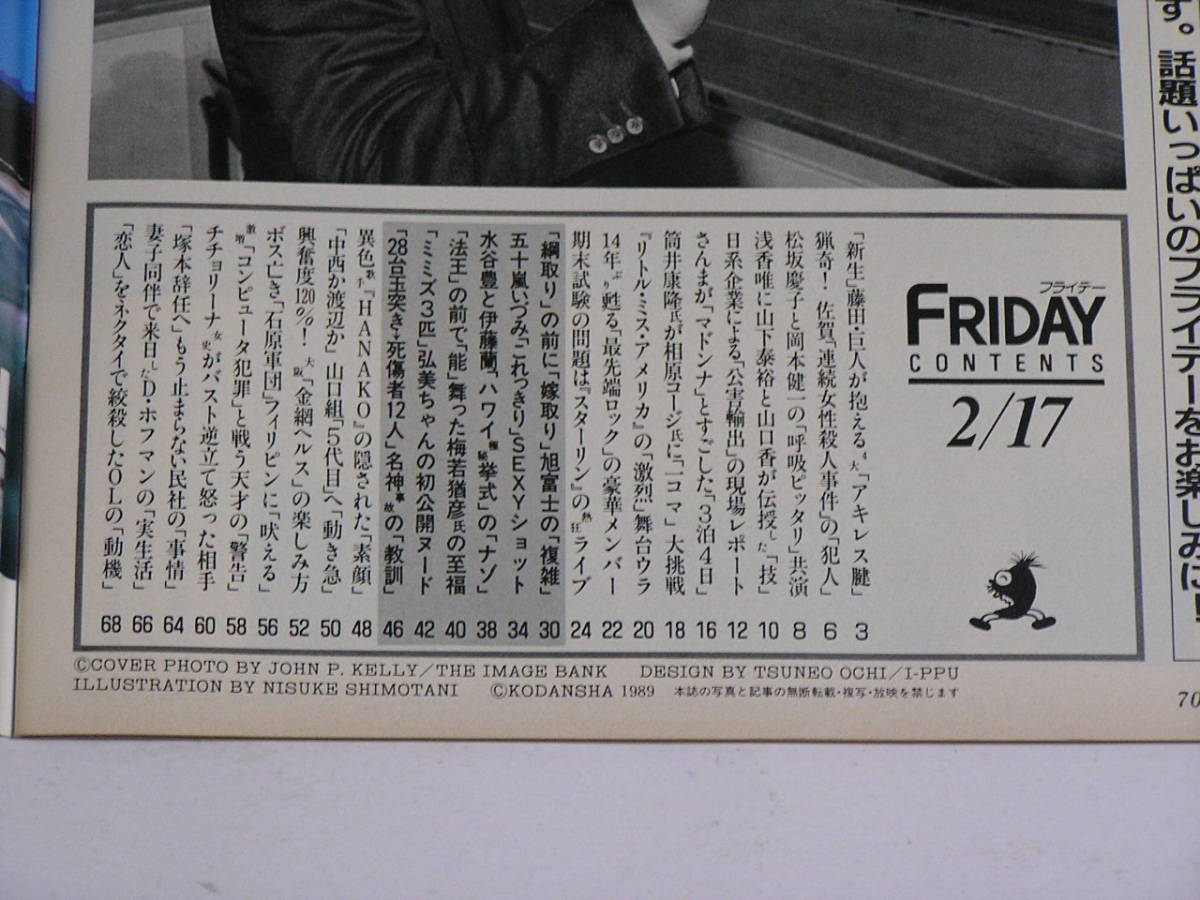 す。話題いっぱいのフライデーをお楽しみに!
フライデー
FRIDAY
CONTENTS
2/17
「新生」藤田・巨人が抱える4大「アキレス腱」 3
猟奇! 佐賀「連続女性殺人事件」の「犯人」 6
松坂慶子と岡本健一の「呼吸ピッタリ」共演 8
浅香唯に山下泰裕と山口香が伝授した「技」 10
日系企業による「公害輸出」の現場レポート 12
さんまが「マドンナ」とすごした「3泊4日」 16
筒井康隆氏が相原コージ氏に「一コマ」大挑戦 18
『リトル・ミス・アメリカ』の「激烈」舞台ウラ 20
14年ぶり甦る「最先端ロック」の豪華メンバー 22
期末試験の問題は『スターリン』の熱狂ライブ 24
「綱取り」の前に「嫁取り」旭富士の「複雑」 30
五十嵐いづみ「これっきり」SEXYショット 34
水谷豊と伊藤蘭「ハワイ極秘挙式」の「ナゾ」 38
「法王」の前で「能」舞った梅若猶彦氏の至福 40
「ミミズ3匹」弘美ちゃんの初公開ヌード 42
「28台玉突き→死傷者12人」名神事故の「教訓」 46
異色歌手『HANAKO』の隠された「素顔」 48
「中西か渡辺か」山口組「5代目」へ「動き急」 50
興奮度120%! 大阪「金網ヘルス」の楽しみ方 52
ボス亡き「石原軍団」フィリピンに「吠える」 56
激増「コンピュータ犯罪」と戦う天才の「警告」 58
チチョリーナ女史がバスト逆立て怒った相手 60
「塚本辞任へ」もう止まらない民社の「事情」 64
妻子同伴で来日したD・ホフマンの「実生活」 66
「恋人」をネクタイで絞殺したOLの「動機」 68
©COVER PHOTO BY JOHN P. KELLY/THE IMAGE BANK DESIGN BY TSUNEO OCHI/I-PPU
ILLUSTRATION BY NISUKE SHIMOTANI ©KODANSHA 1989 本誌の写真と記事の無断転載・複写・放映を禁じます
70